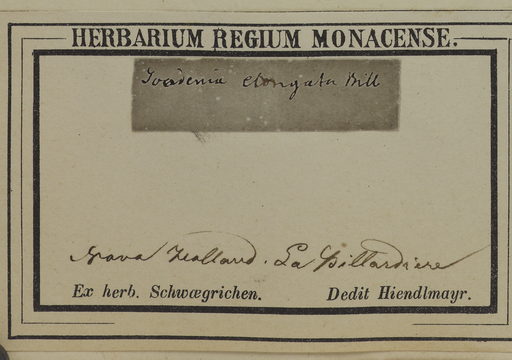 HERBARIUM REGIUM MONACENSE.
Goodenia elongata Bill
Nova Holland. La Billardiere
Ex herb. Schwægrichen. Dedit Hiendlmayr.